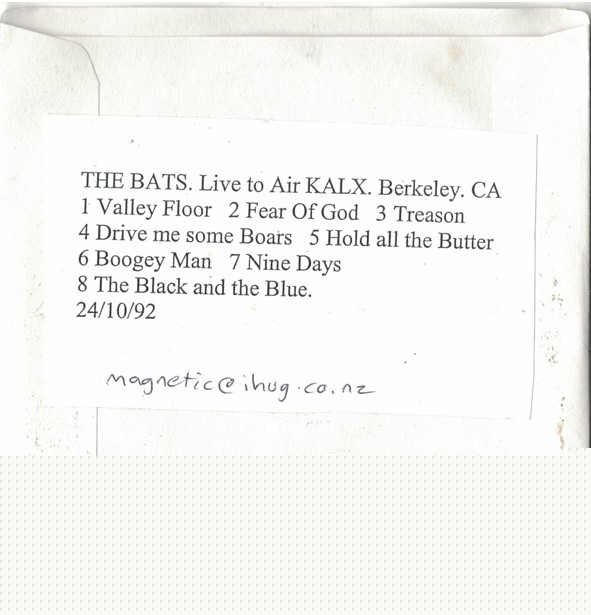 THE BATS. Live to Air KALX. Berkeley. CA
1 Valley Floor   2 Fear Of God   3 Treason
4 Drive me some Boars   5 Hold all the Butter
6 Boogey Man   7 Nine Days
8 The Black and the Blue.
24/10/92
magnetic@ihug.co.nz